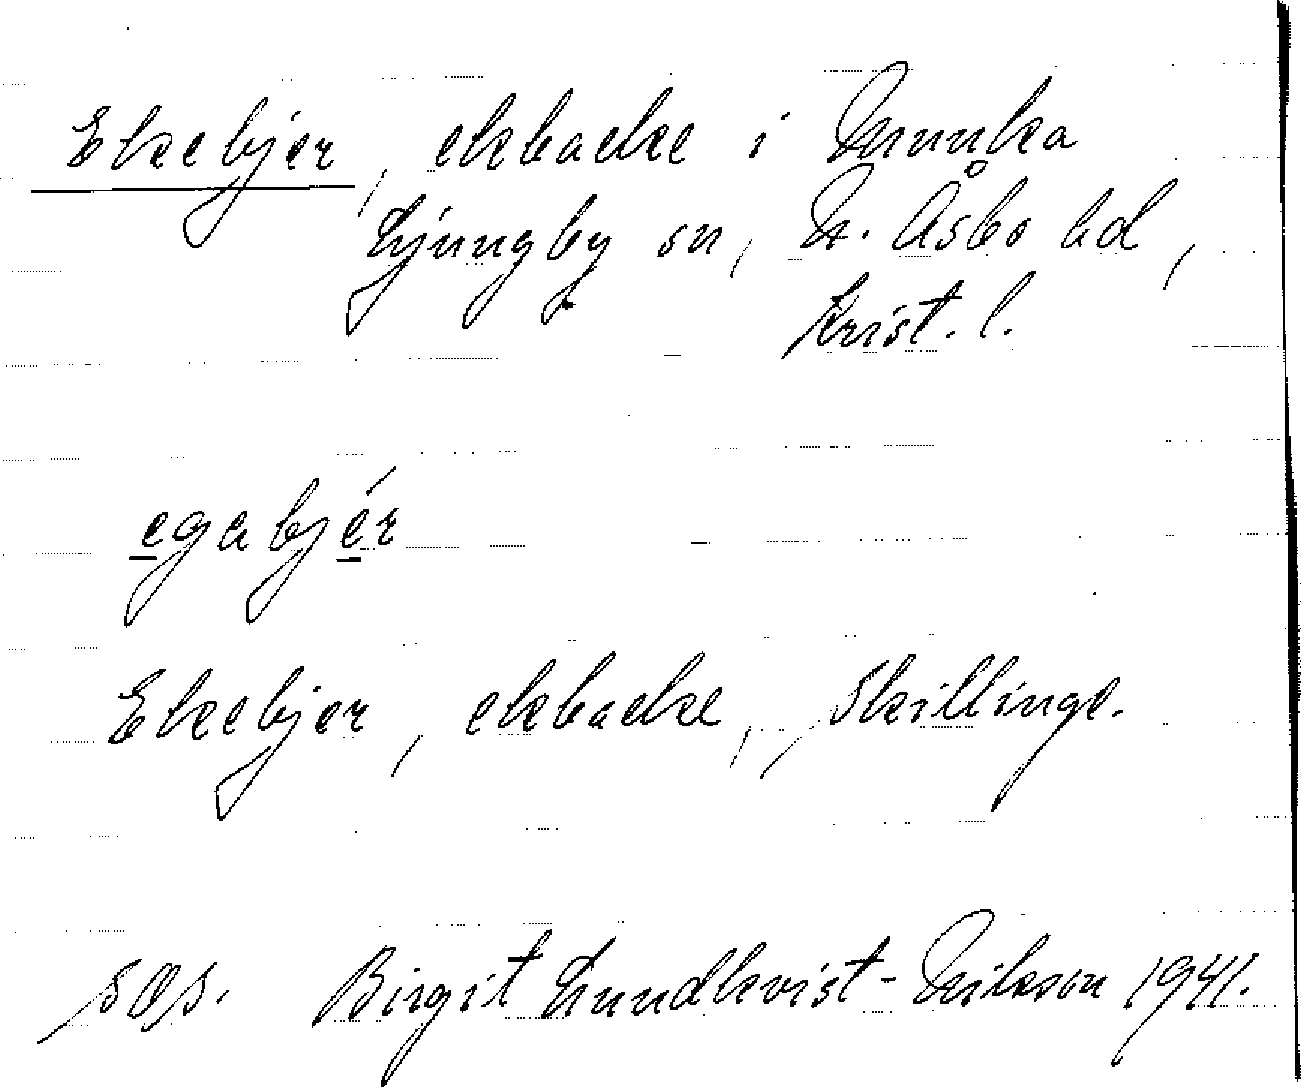 Ekebjer, ekbacke i Munka
Ljungby sn, N. Åsbo hd,
Krist. l.
egabjér
Ekebjer, ekbacke, Skillinge.
Birgit Lundkvist-Nilsson 1941.